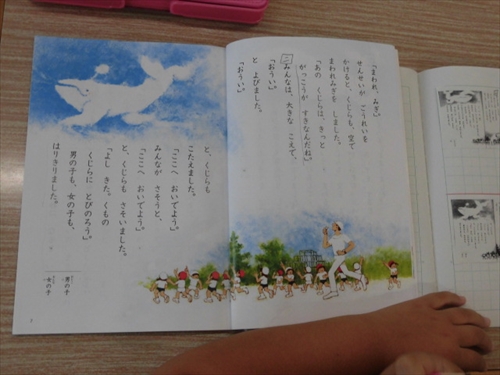 「まわれ、みぎ」
せんせいが ごうれいを
かけると、くじらも、空で
まわれみぎを しました。
「あの くじらは、きっと
がっこうが すきなんだね。」
みんなは、大きな こえで、
「おうい。」
と よびました。
「おうい。」
と、くじらも
こたえました。
「ここへ おいでよう。」
みんなが さそうと、
「ここへ おいでよう。」
と、くじらも さそいました。
「よし きた。くもの
くじらに とびのろう。」
男の子も、女の子も、
はりきりました。
男の子
女の子